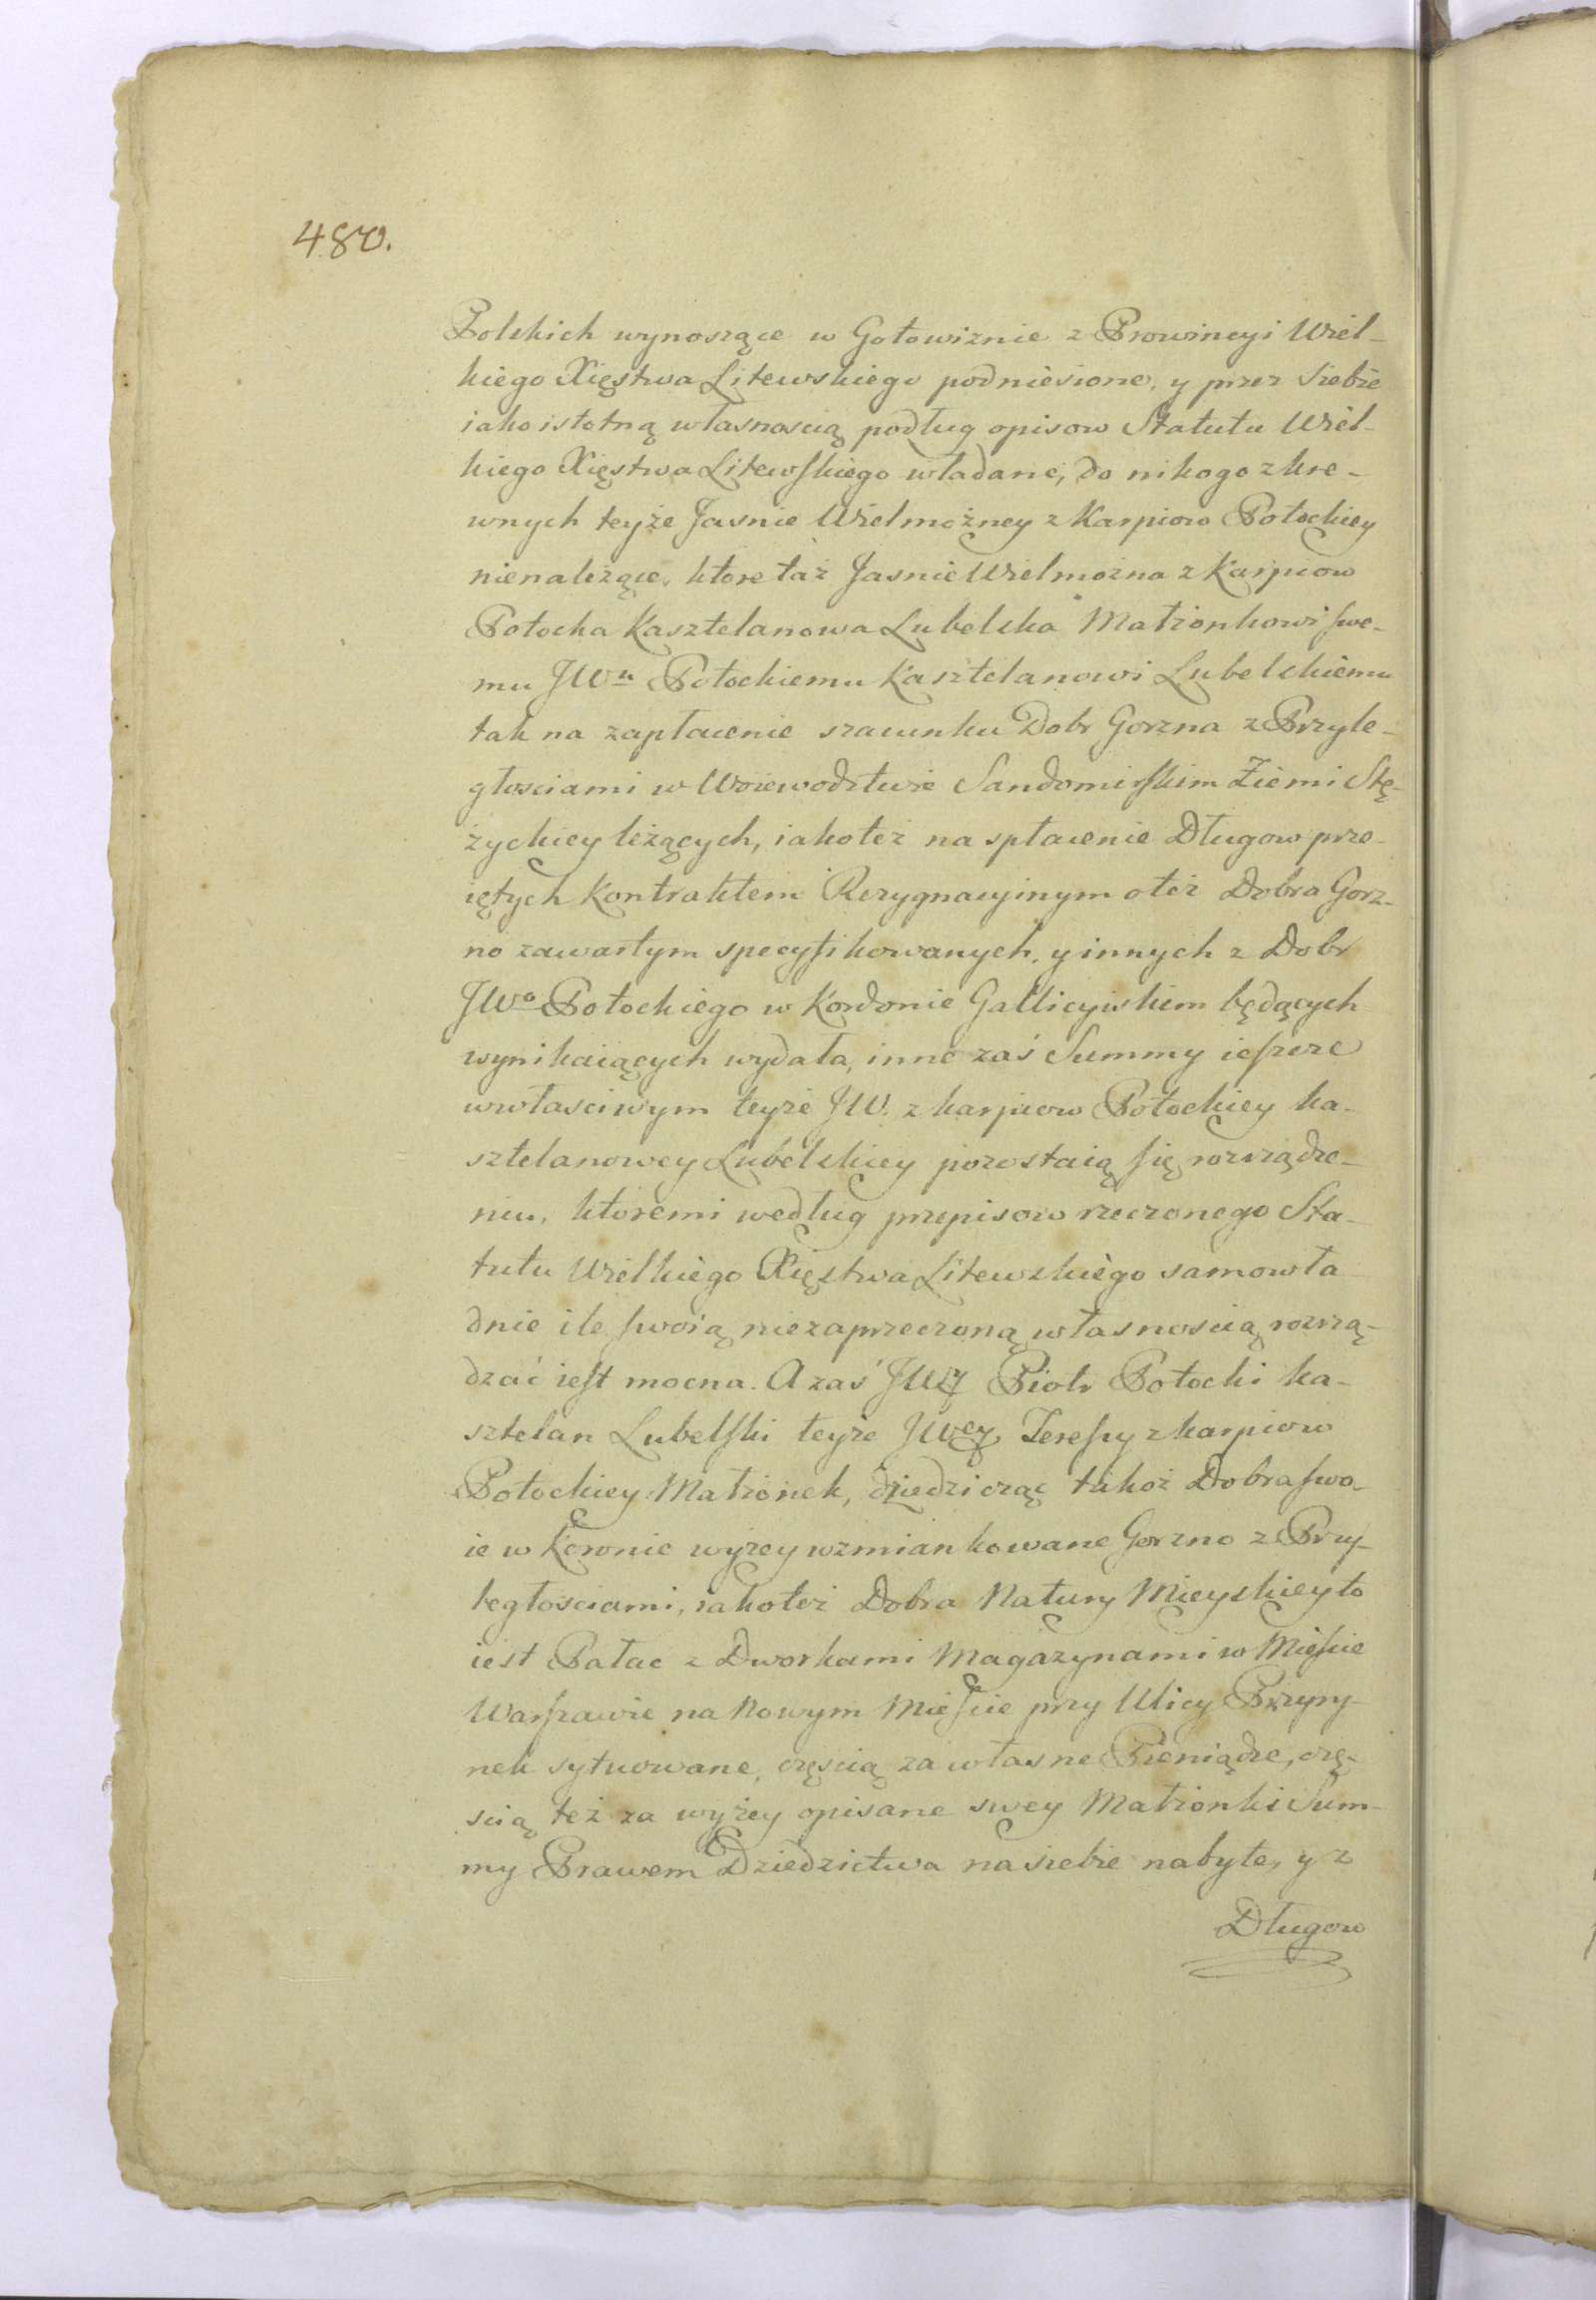 480.
Polskich wynoszące w Gotowiznie z Prowincyi Wiel-
kiego Xięstwa Litewskiego podniesione, y przez siebie
iako istotną własnoscią podług opisow Statutu Wiel-
kiego Xięstwa Litewskiego władane, do nikogo z kre-
wnych teyże Jasnie Wielmożney z Karpiow Potockiey
nienależące, ktore taż Jasnie Wielmożna z Karpiow
Potocka Kasztelanowa Lubelska Matżonkowi swe-
mu JWu Potockiemu Kasztelanowi Lubelskiemu
tak na zapłacenie szacunku Dobr Gorzna z Przyle-
głosciami w Woiewodztwie Sandomirskim Ziemi Stę-
życkiey leżących, iakoteż na spłacenie Długow prze-
iętych Kontraktem Rezygnacyinym o też Dobra Gorz-
no zawartym specyfikowanych, y innych z Dobr
JWo Potockiego w Kordonie Gallicyiskim będących
wynikaiących wydała, inne zaś Summy ieszcze
w własciwym teyże JW. z Karpiow Potockiey Ka-
sztelanowey Lubelskiey pozostaią się rozrządze-
niu, ktoremi według przepisow rzeczonego Sta-
tutu Wielkiego Xięstwa Litewskiego samowła
dnie ile swoią niezaprzeczoną własnoscią rozrzą-
dzać iest mocna. A zaś JWy Piotr Potocki Ka-
sztelan Lubelski teyże JWey Teresy z Karpiow
Potockiey Matżonek, dziedzicząc takoż Dobra swo-
ie w Koronie wyżey wzmiankowane Gorzno z Przy-
ległosciami, iakoteż Dobra Natury Mieyskiey to
iest Pałac z Dworkami Magazynami w Miescie
Warszawie na Nowym Miescie przy Ulicy Przyry-
nek sytuowane, częscią za własne Pieniądze, czę-
scią też za wyżey opisane swey Matżonki Sum-
my Prawem Dziedzictwa na siebie nabyte, y z
Długow